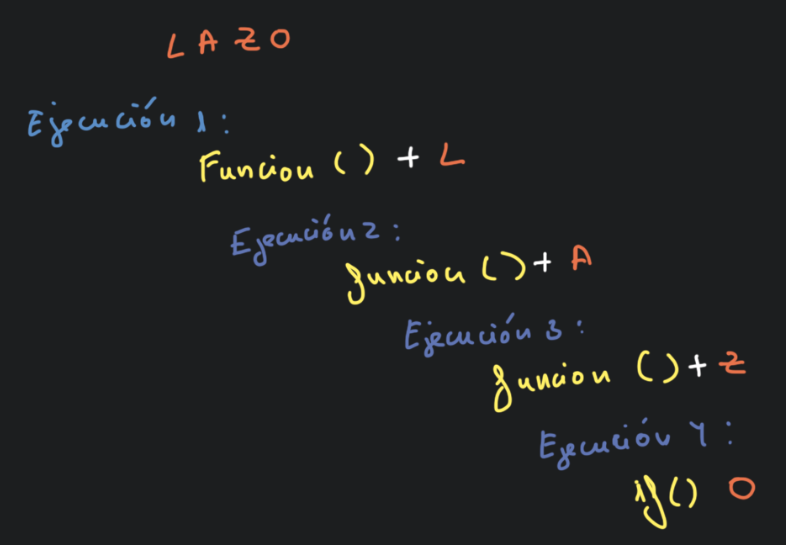 LAZO
Ejecución 1:
Funcion () + L
Ejecución 2:
funcion () + A
Ejecución 3:
funcion () + Z
Ejecución 4:
if() O